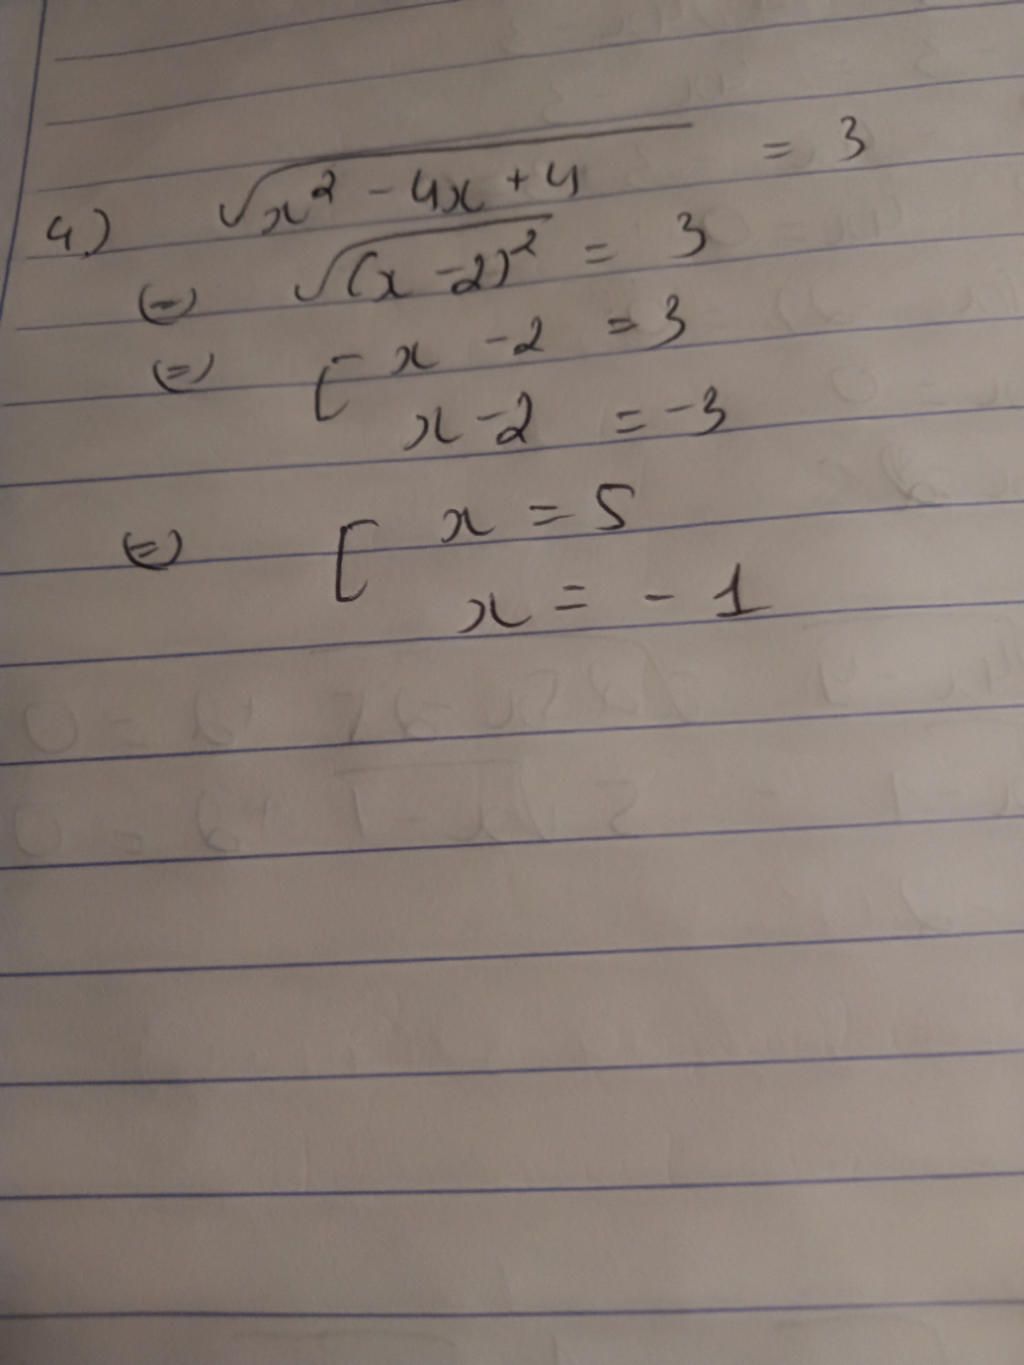 4) √(x² - 4x + 4) = 3
(=) √(x - 2)² = 3
(=) [ x - 2 = 3
x - 2 = -3
(=) [ x = 5
x = - 1